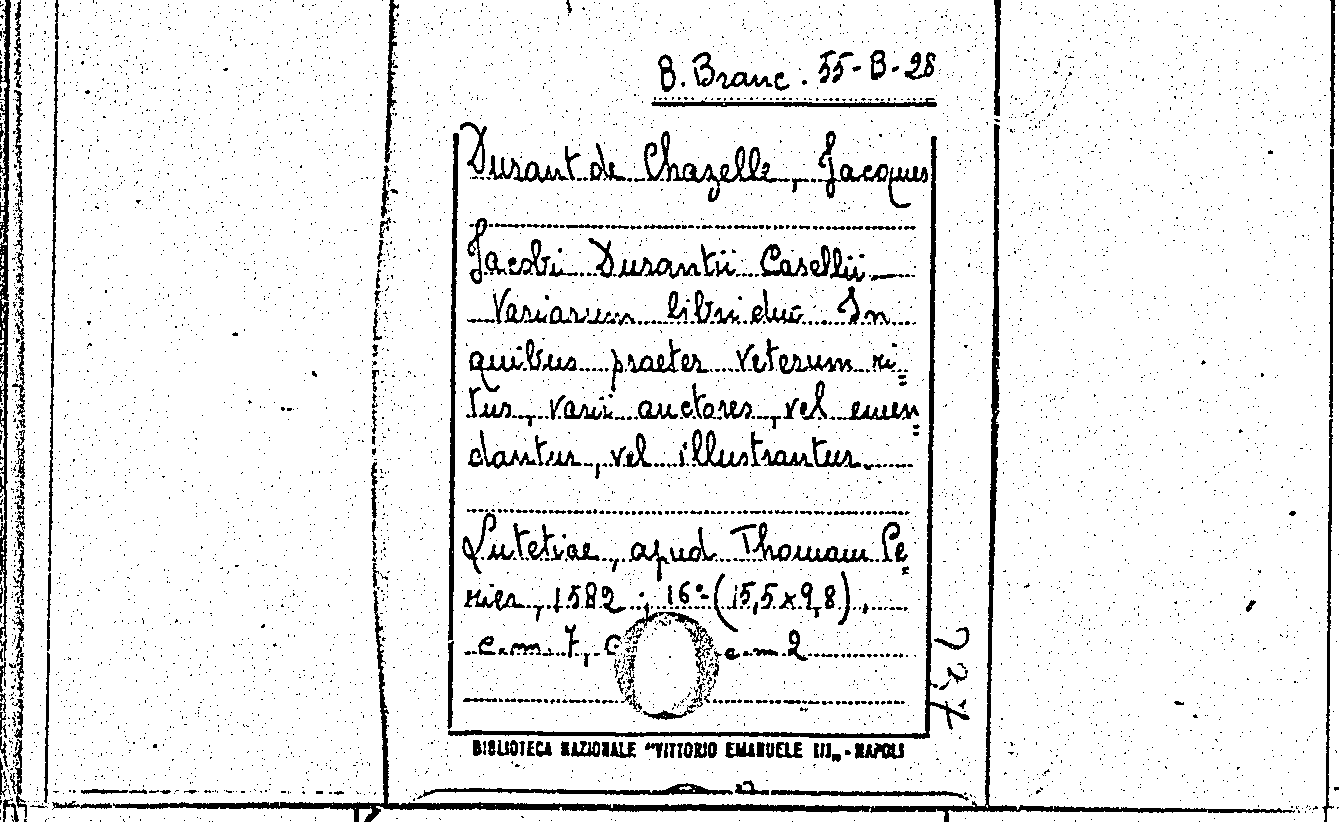 B. Branc. 55-B-28
Durant de Chazelle, Jacques
Jacobi Durantii Casellii
Variarum libri duc. In
quibus praeter veterum ri=
tus, varii auctores, vel emen=
dantur, vel illustrantur.
Lutetiae, apud Thomam Pe=
rier, 1582; 16º (15,5x9,8),
c.m. 7, c c.m 2
BIBLIOTECA NAZIONALE "VITTORIO EMANUELE III„ - NAPOLI